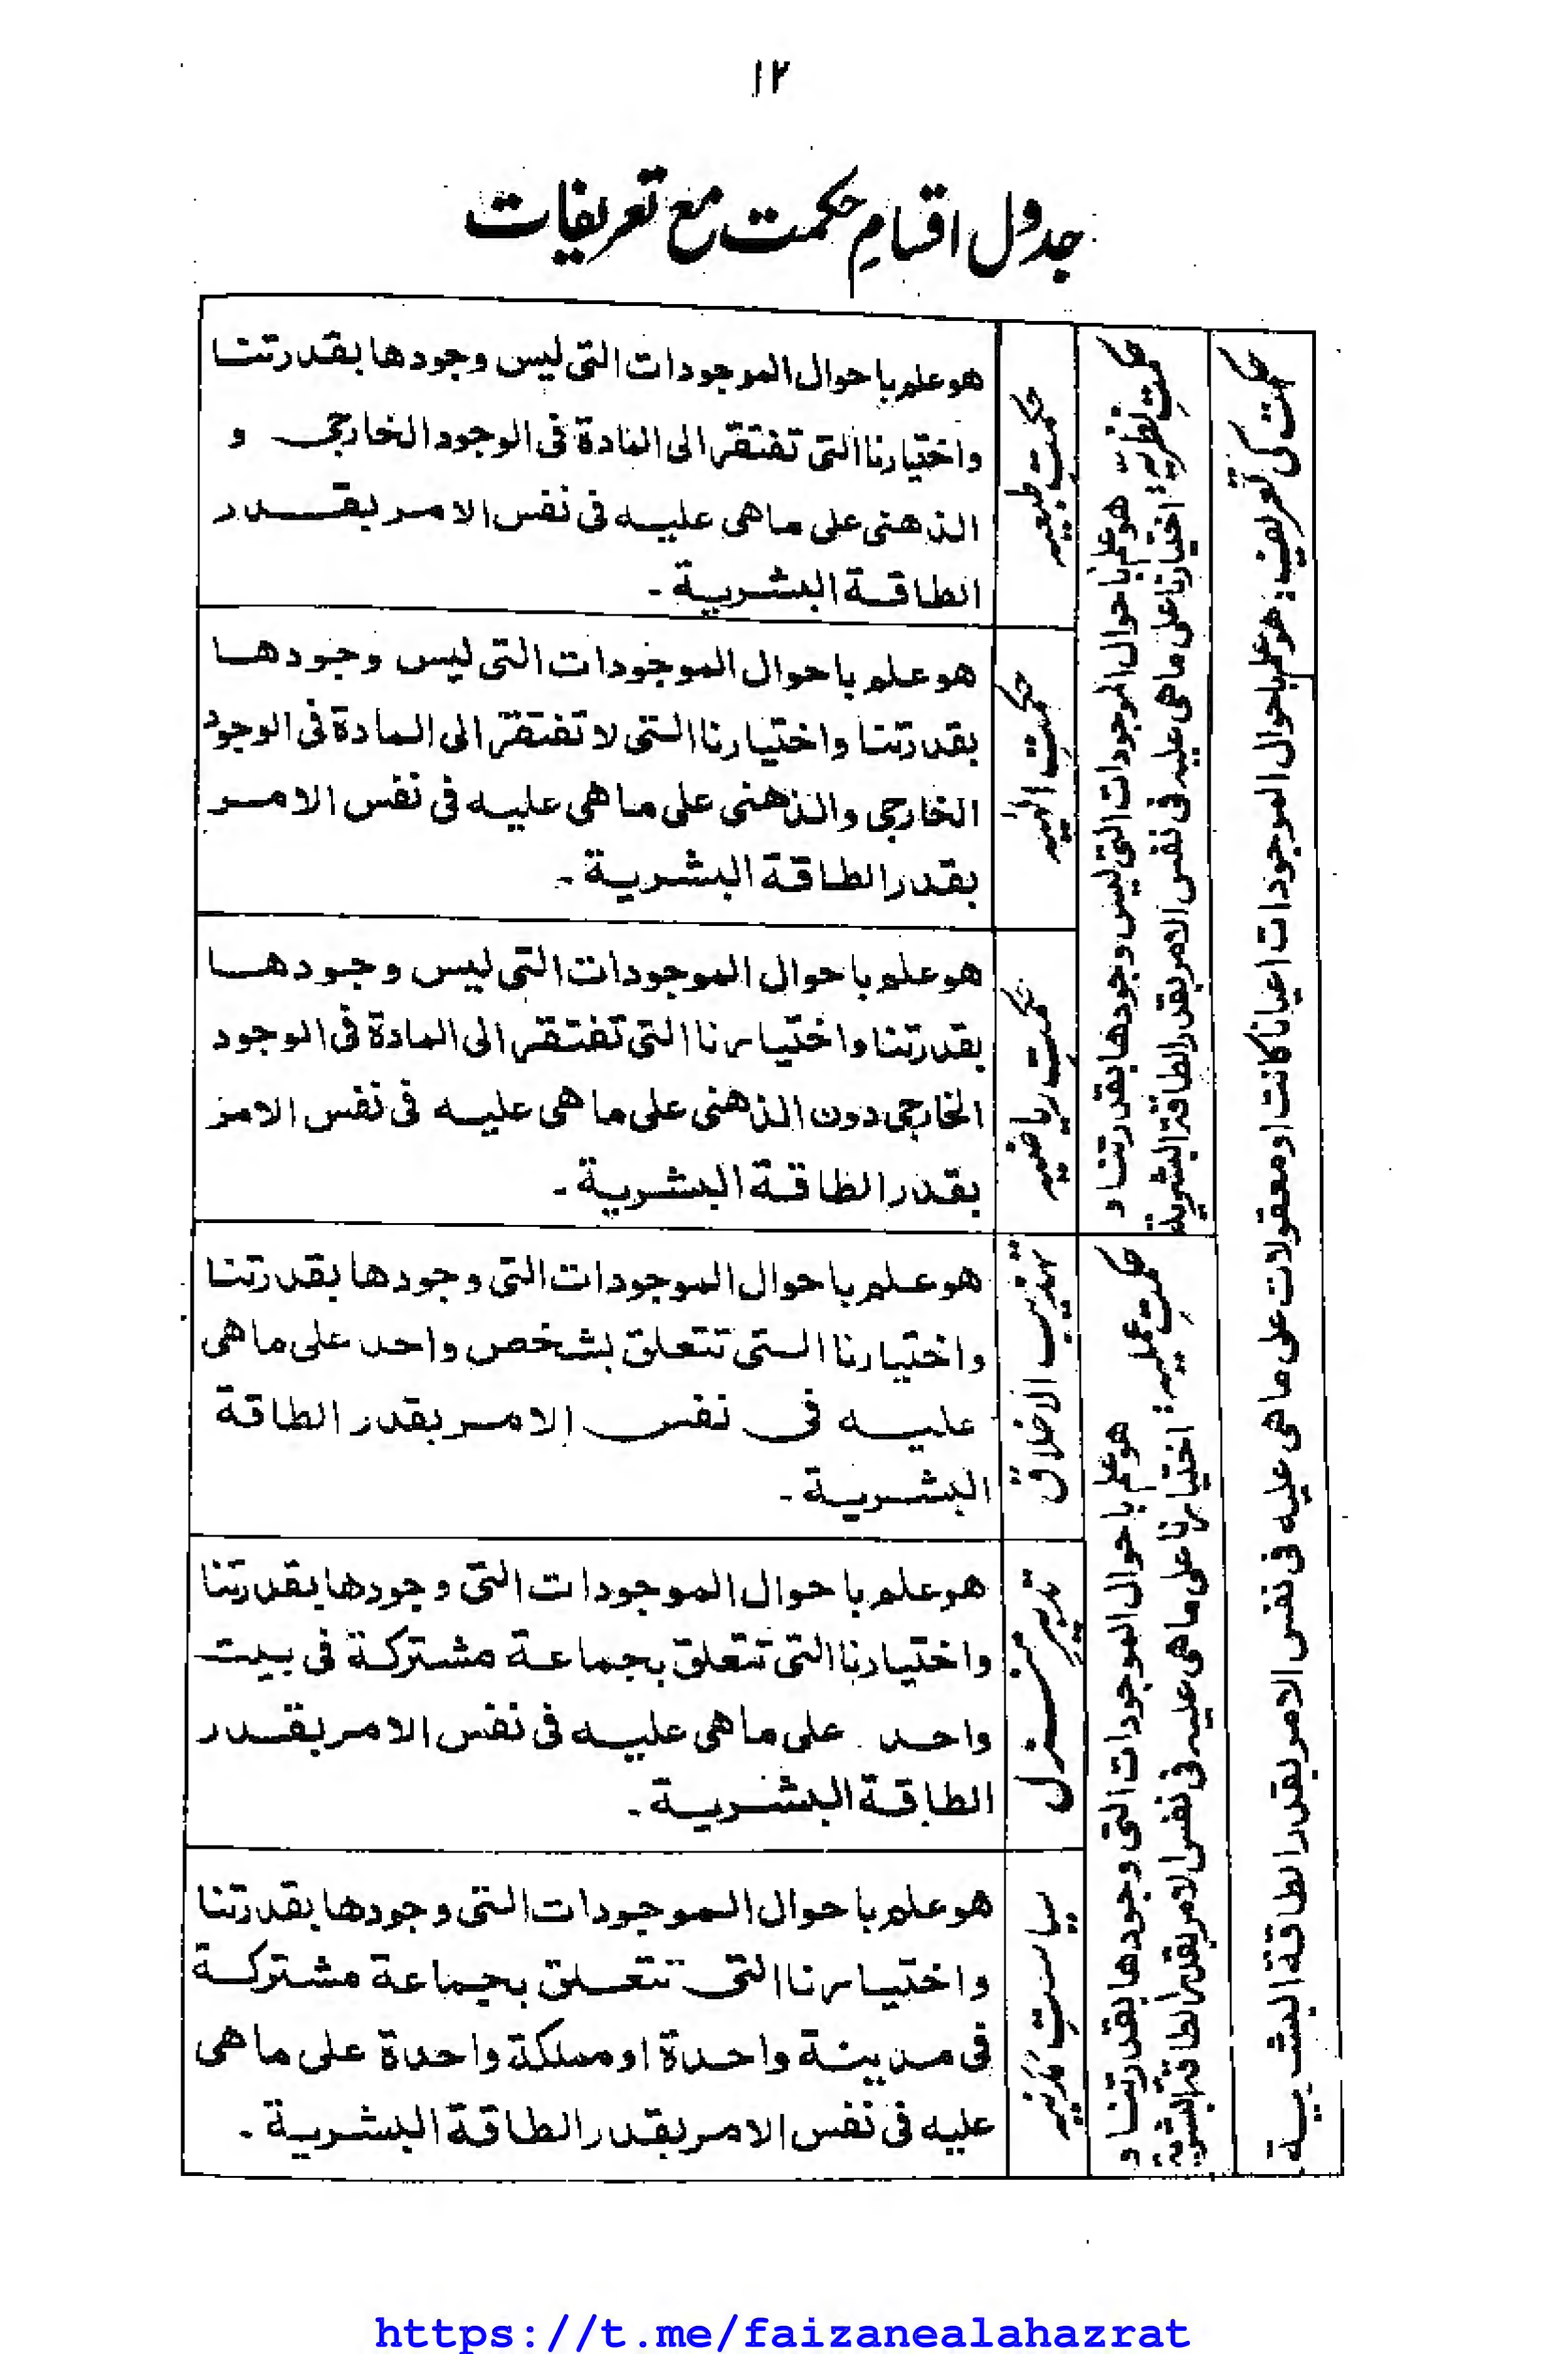 ١٢
جدول اقسامِ حکمت مع تعریفات
حکمت کی تعریف: هو علم باحوال الموجودات اعیانا کانت او معقولات علی ما هی علیه فی نفس الامر بقدر الطاقة البشریة
حکمتِ نظریّہ: هو علم باحوال الموجودات التی لیس وجودها بقدرتنا و
اختیارنا علی ما هی علیه فی نفس الامر بقدر الطاقة البشریة
حکمتِ طبعیہ
هو علم باحوال الموجودات التی لیس وجودها بقدرتنا
واختیارنا التی تفتقر الی المادة فی الوجود الخارجی و
الذهنی علی ما هی علیه فی نفس الامر بقدر
الطاقة البشریة۔
حکمتِ الٰہیہ
هو علم باحوال الموجودات التی لیس وجودها
بقدرتنا واختیارنا التی لا تفتقر الی المادة فی الوجود
الخارجی والذهنی علی ما هی علیه فی نفس الامر
بقدر الطاقة البشریة۔
حکمتِ ریاضیہ
هو علم باحوال الموجودات التی لیس وجودها
بقدرتنا واختیارنا التی تفتقر الی المادة فی الوجود
الخارجی دون الذهنی علی ما هی علیه فی نفس الامر
بقدر الطاقة البشریة۔
حکمتِ عملیہ: هو علم باحوال الموجودات التی وجودها بقدرتنا و
اختیارنا علی ما هی علیه فی نفس الامر بقدر الطاقة البشریة
تہذیب الاخلاق
هو علم باحوال الموجودات التی وجودها بقدرتنا
واختیارنا التی تتعلق بشخص واحد علی ما هی
علیه فی نفس الامر بقدر الطاقة
البشریة۔
تدبیر منزل
هو علم باحوال الموجودات التی وجودها بقدرتنا
واختیارنا التی تتعلق بجماعة مشترکة فی بیت
واحد علی ما هی علیه فی نفس الامر بقدر
الطاقة البشریة۔
سیاستِ مَدَنیہ
هو علم باحوال الموجودات التی وجودها بقدرتنا
واختیارنا التی تتعلق بجماعة مشترکة
فی مدینة واحدة او مملکة واحدة علی ما هی
علیه فی نفس الامر بقدر الطاقة البشریة۔
https://t.me/faizanealahazrat